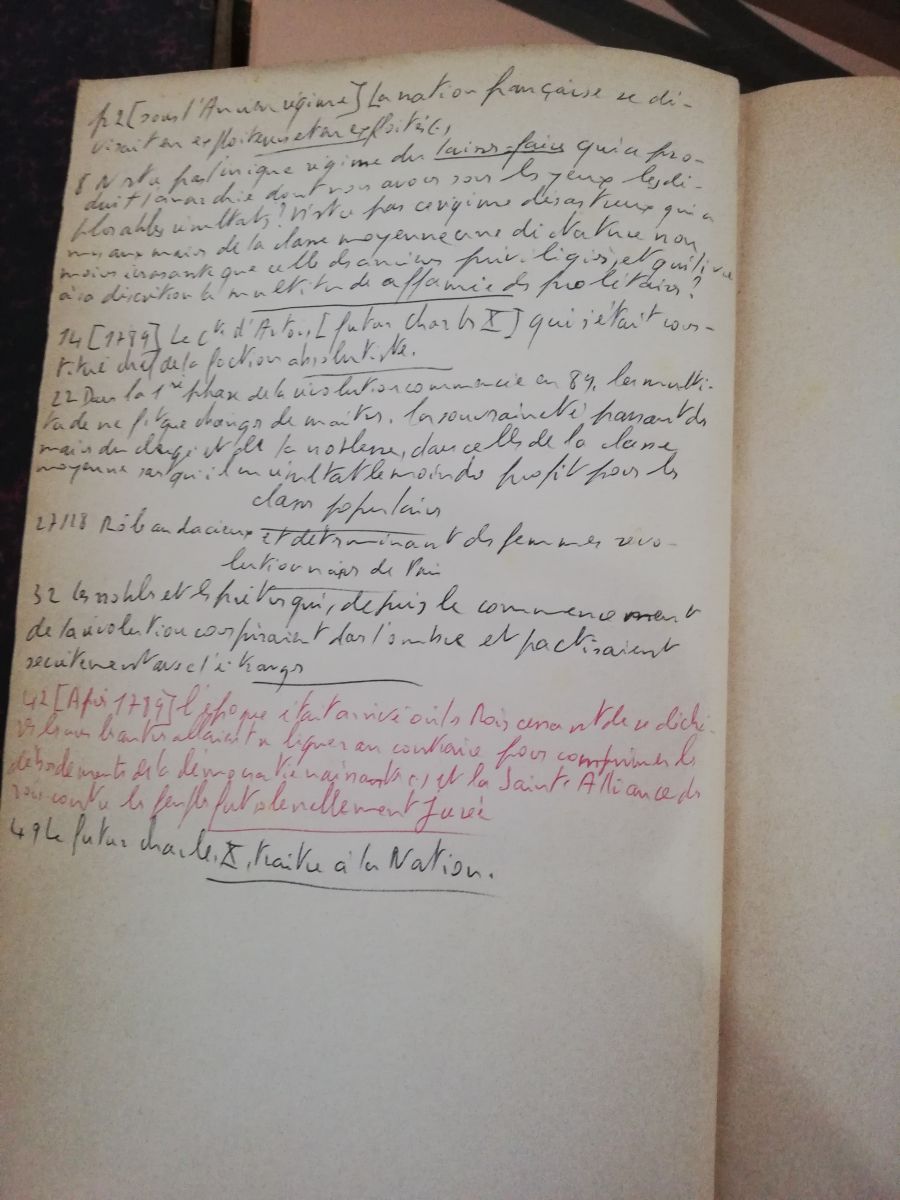 p2 [sous l'Ancien régime] La nation française se di-
visait en exploiteurs et en exploités (.)
8 N'est-ce pas l'inique régime du laisser-faire qui a pro-
duit l'anarchie dont nous avons sous les yeux les dé-
plorables résultats ? N'est-ce pas ce régime désastreux qui a
mis aux mains de la classe moyenne une dictature non
moins écrasante que celle des anciens privilégiés, et qui livre
à sa discrétion la multitude affamée des prolétaires ?
14 [1789] Le Cte d'Artois, [futur Charles X] qui s'était cons-
titué chef de la faction absolutiste.
22 Dans la 1re phase de la révolution commencée en 89, les multi-
tude ne fit que changer de maîtres, la souveraineté passant des
mains du clergé et de la noblesse, dans celles de la classe
moyenne sans qu'il en résultat le moindre profit pour les
classes populaires
27/28 Rôle audacieux et déterminant des femmes révo-
lutionnaires de Paris
32 Les nobles et les prêtres qui, depuis le commencement
de la révolution conspiraient dans l'ombre et pactisaient
secrètement avec l'étranger
42 [Après 1789] l'époque était arrivée où les Rois cessant de se déchi-
rer les uns les autres allaient se liguer au contraire pour comprimer les
débordements de la démocratie naissante (.) et la Sainte-Alliance des
rois contre les peuples fut solennellement Jurée
49 Le futur Charles X, traître à la Nation.